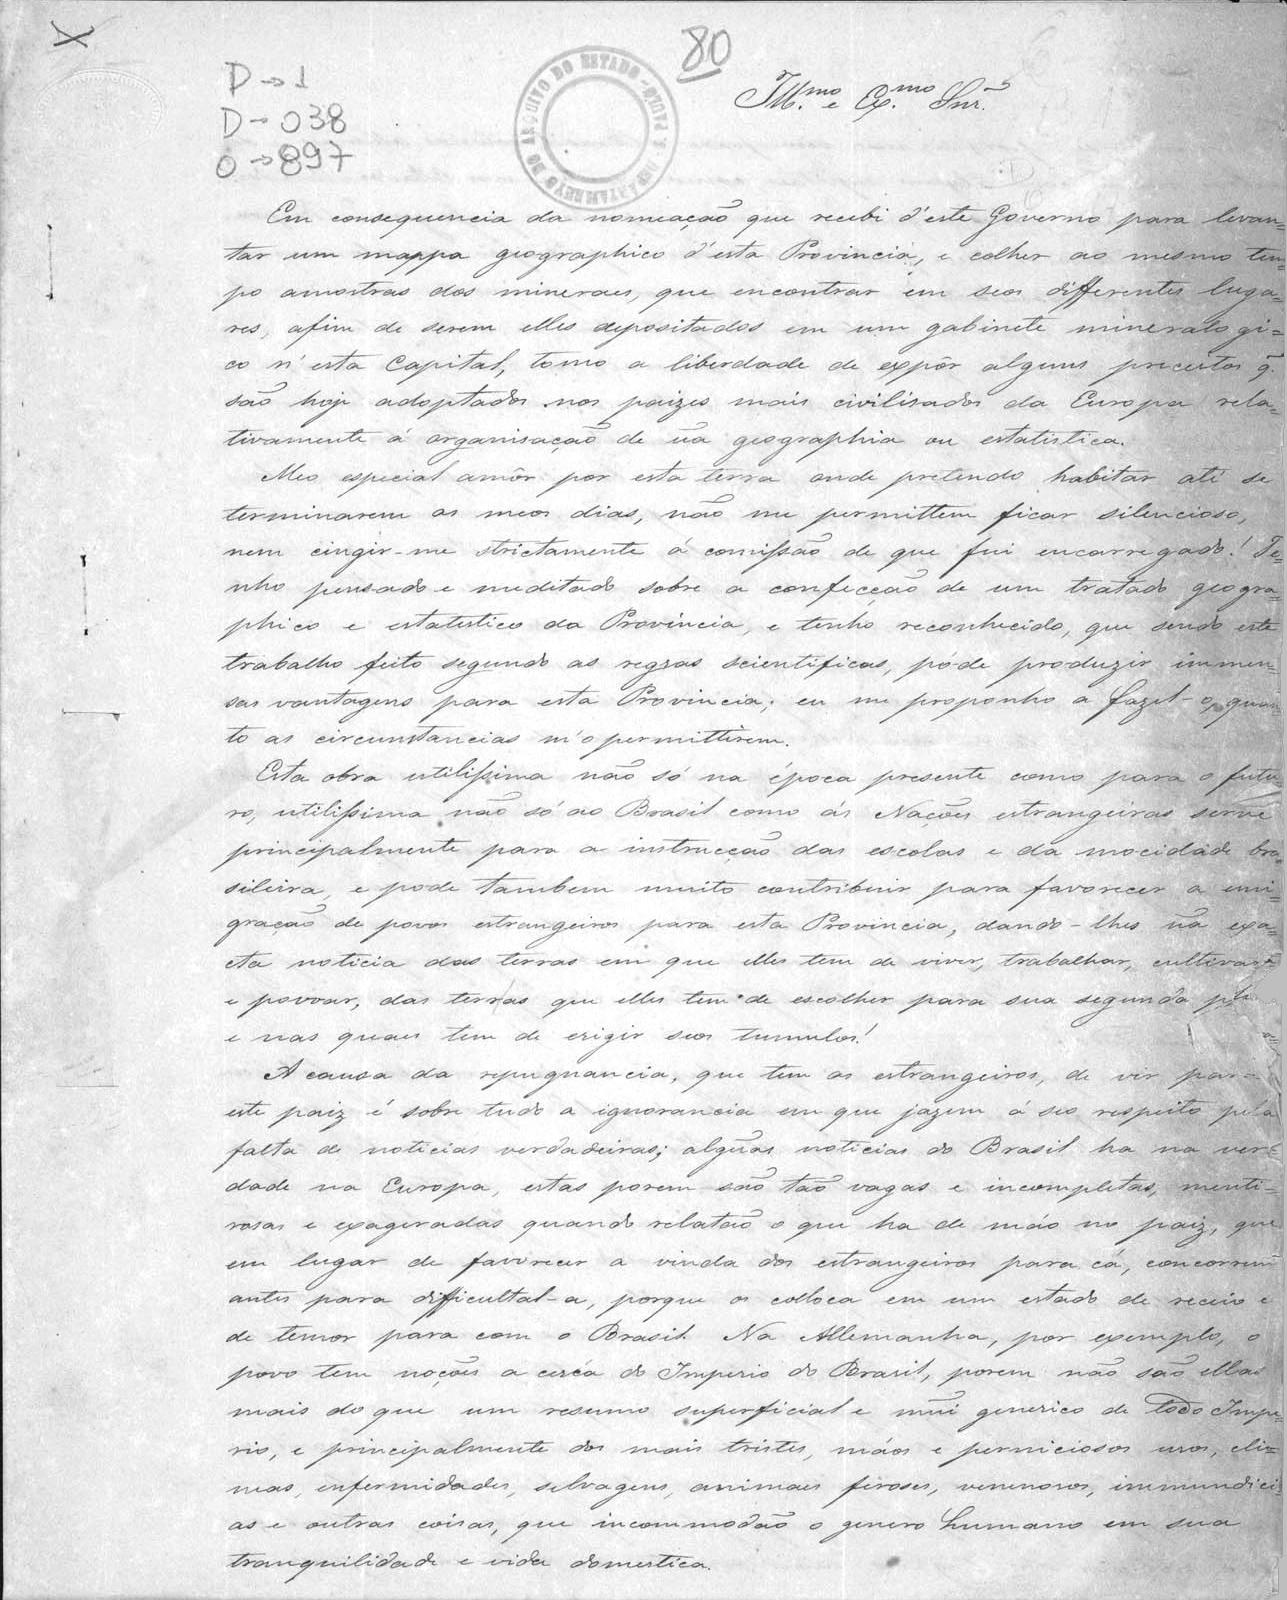 80
D→1
D→038
O→897
DEPARTAMENTO DO ARQUIVO DO ESTADO - S. PAULO
Ill.mo e Ex.mo Snr.
Em consequencia da nomeação que recebi d'este Governo para levan=
tar um mappa geographico d'esta Provincia, e colher ao mesmo tem=
po amostras dos mineraes, que encontrar em seos differentes luga=
res, afim de serem elles depositados em um gabinete mineralogi=
co n'esta Capital, tomo a liberdade de expôr alguns preceitos q̃
são hoje adoptados nos paizes mais civilisados da Europa rela=
tivamente á organisação de ũa geographia ou estatistica.
Meo especial amôr por esta terra onde pretendo habitar até se
terminarem os meos dias, não me permittem ficar silencioso,
nem cingir-me strictamente á comissão de que fui encarregado! Te=
nho pensado e meditado sobre a confecção de um tratado geogra=
phico e estatistico da Provincia, e tenho reconhecido, que sendo este
trabalho feito segundo as regras scientificas, póde produzir immen=
sas vantagens para esta Provincia; eu me proponho a fazel-o, quan
to as circumstancias m'o permittirem.
Esta obra utilissima não só na época presente como para o futu=
ro, utilissima não só ao Brasil como ás Nações estrangeiras serve
principalmente para a instrucção das escolas e da mocidade bra
sileira, e pode tambem muito contribuir para favorecer a emi=
gração de povos estrangeiros para esta Provincia, dando-lhes ũa exa=
cta noticia das terras em que elles tem de viver, trabalhar, cultivar
e povoar, das terras que elles tem de escolher para sua segunda
e nas quaes tem de erigir seos tumulos!
A causa da repugnancia, que tem os estrangeiros, de vir para
este paiz é sobre tudo a ignorancia em que jazem á seo respeito pela
falta de noticias verdadeiras; algũas noticias do Brasil ha na ver=
dade na Europa, estas porem são tão vagas e incompletas, menti=
rosas e exageradas quando relatão o que ha de máo no paiz, que
em lugar de favorecer a vinda dos estrangeiros para cá, concorrem
antes para difficultal-a, porque os colloca em um estado de receio e
de temor para com o Brasil. Na Allemanha, por exemplo, o
povo tem noções a cerca do Imperio do Brasil, porem não são ellas
mais do que um resumo superficial e mũi generico de todo Impe=
rio, e principalmente dos mais tristes, máos e perniciosos usos, cli=
mas, enfermidades, selvagens, animaes feroses, venenosos, immundici=
as e outras coisas, que incommodão o genero humano em sua
tranquilidade e vida domestica.